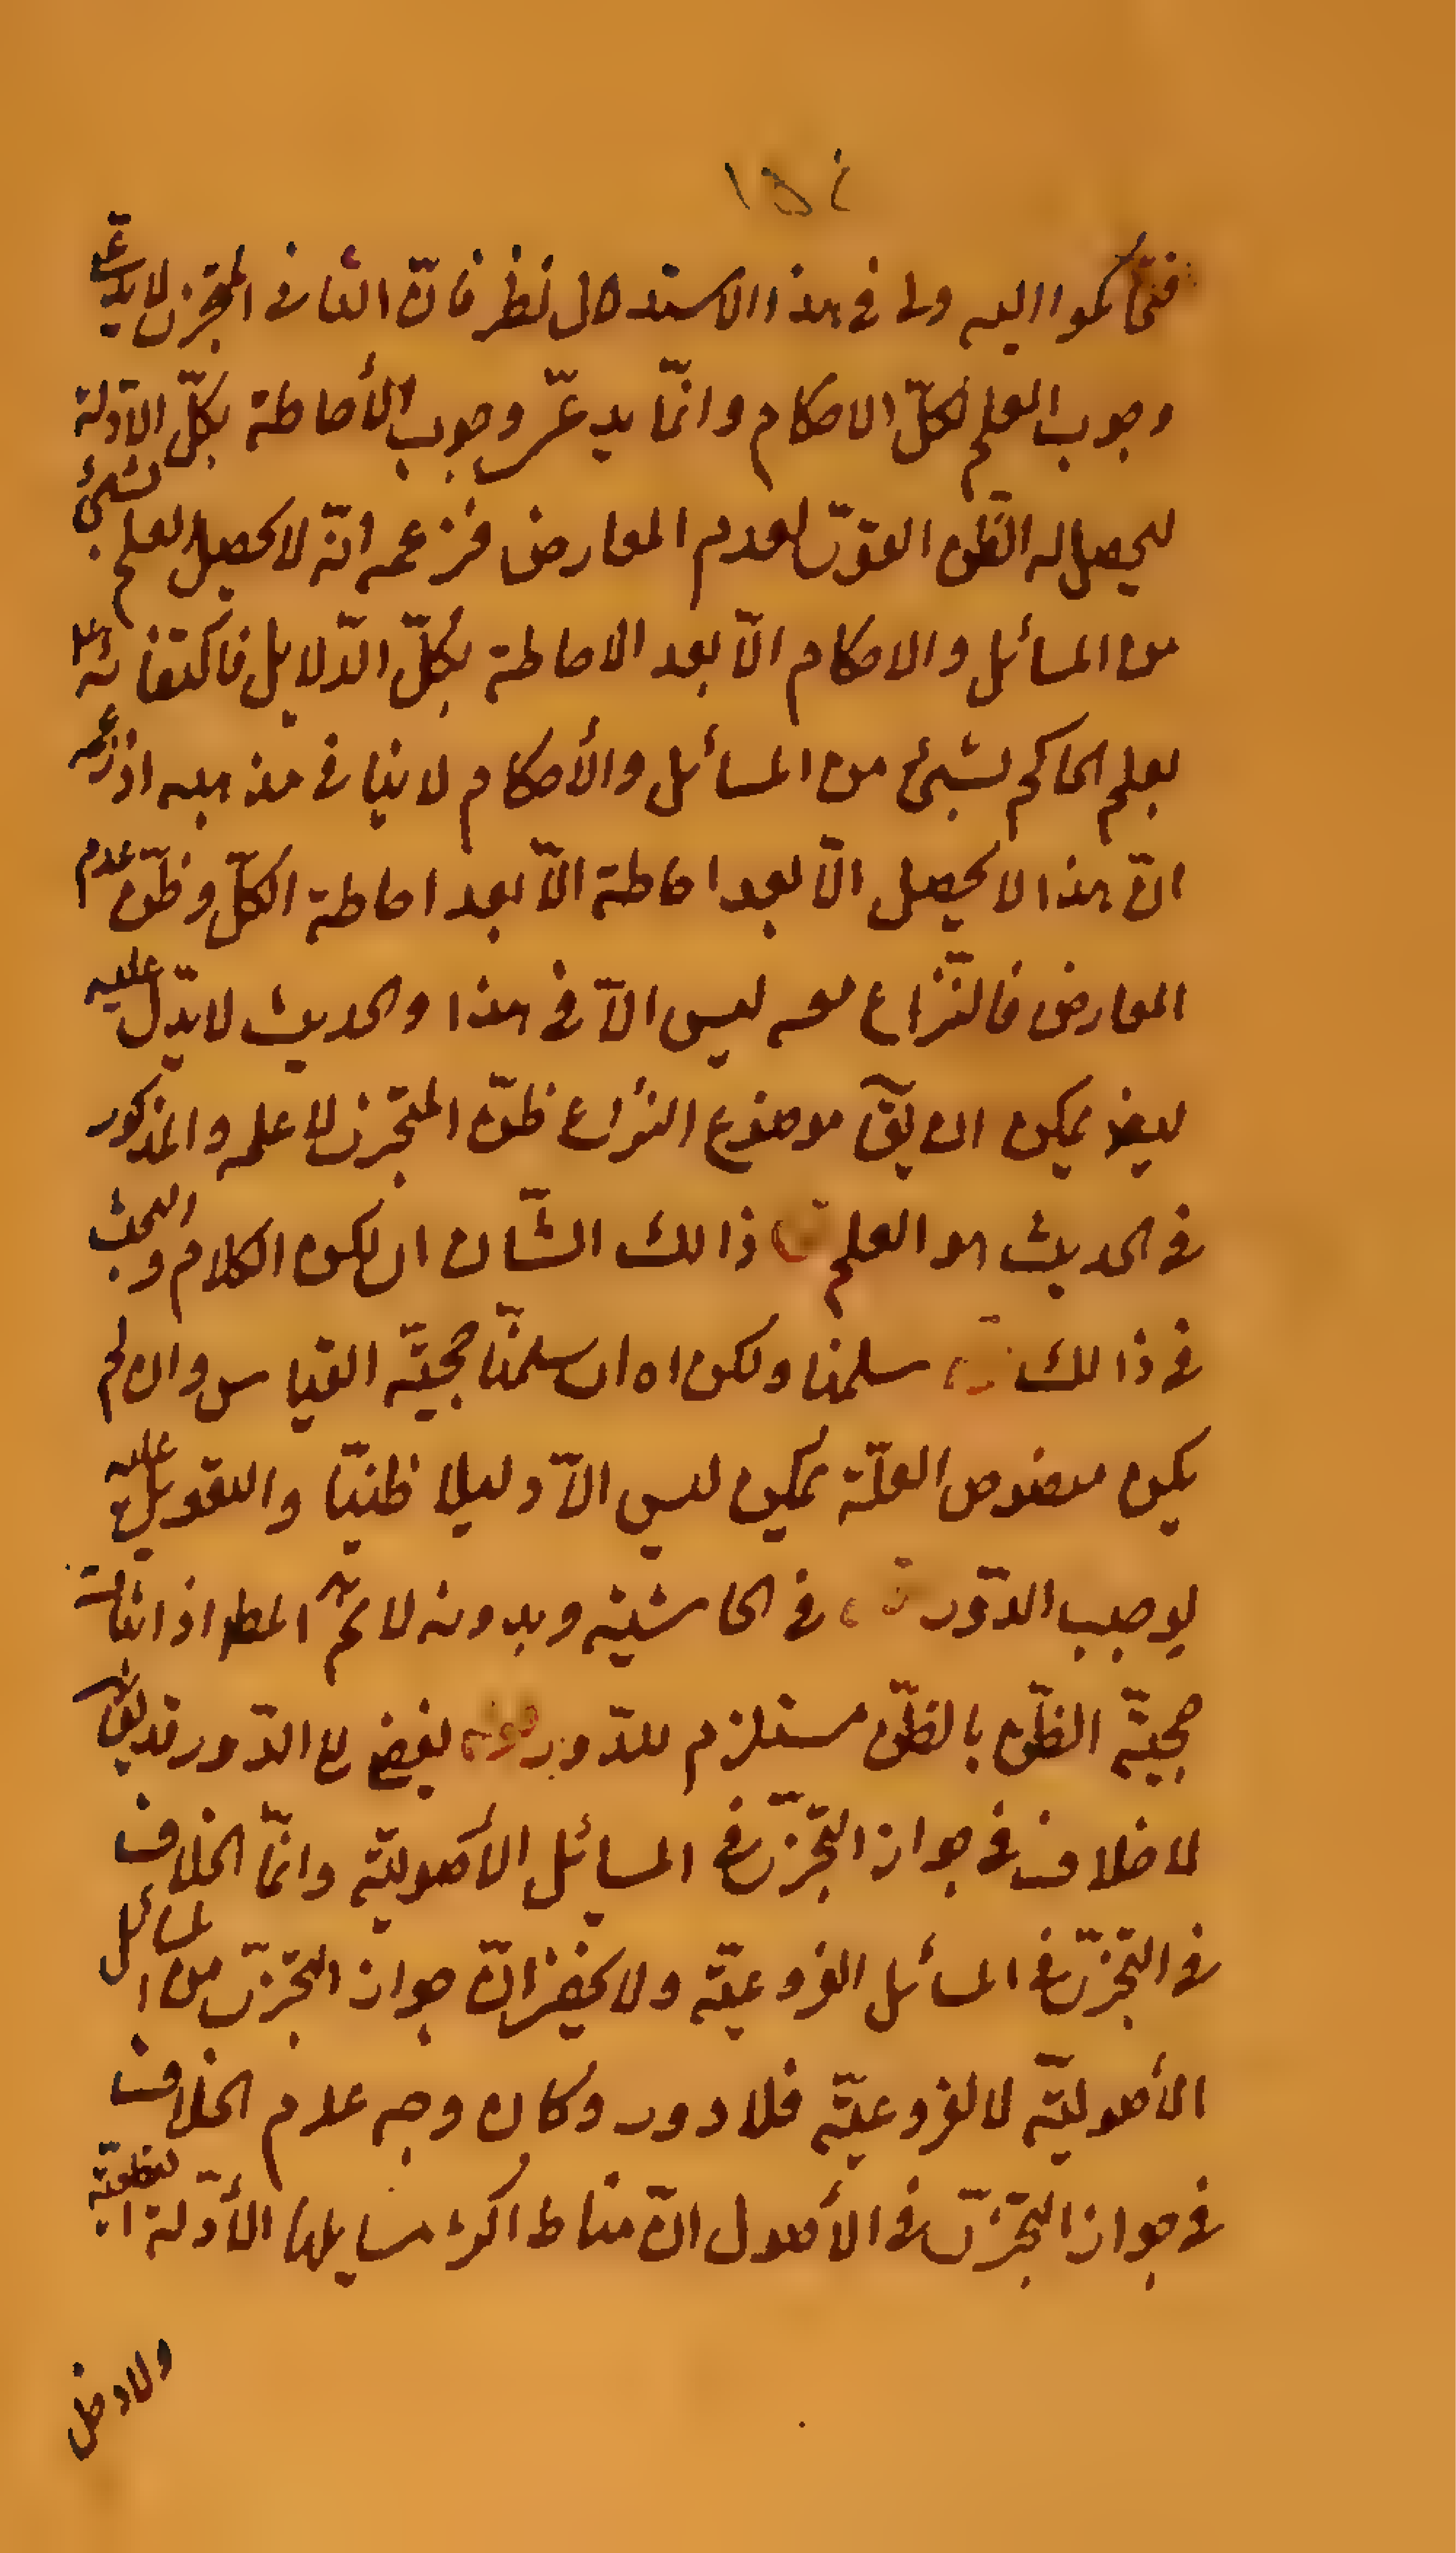 ١٥٤
فتحاكموا اليه ولى فى هذا الاستدلال نظر فانّ النافى المتجزى لا يدّعى
وجوب العلم لكلّ الاحكام وانّما يدعى وجوب الأحاطة بكلّ الأدلة
ليحصل له الظّن القوىّ لعدم المعارض فزعمه انّه لا يحصل العلم بشئ
من المسائل والاحكام الاّ بعد الاحاطة بكلّ الدّلايل فاكتفائه
بعلم الحاكم بشئ من المسائل والأحكام لا ينافى مذهبه اذ زعمه
انّ هذا لا يحصل الاّ بعد احاطة الاّ بعد احاطة الكلّ وظنّ عدم
المعارض فالنّزاع معه ليس الاّ فى هذا والحديث لا يدّل عليه
ايضا يمكن ان يقّ موضوع النزاع ظنّ المتجزى لا علمه والمذكور
فى الحديث هو العلم ذالك الشّان ان يكون الكلام والبحث
فى ذالك سلمنا ولكن اه ان سلمنّا حجيّة القياس وان لم
يكن منصوص العلّة يمكن ليس الاّ دليلا ظنيّا والتعويل عليه
يوجب الدّور فى الحاشية وبدونه لا يتم المط اذ اثبات
حجيّة الظّن بالظّن مستلزم للدّور لدفع الدّور قد يقال
لا خلاف فى جواز التجزّى فى المسائل الأصوليّة وانّما الخلاف
فى التجزّى فى المسائل الفروعيّة ولا يخفى انّ جواز التجزّى من المسائل
الأصوليّة لا الفروعيّة فلا دور وكان وجه عدم الخلاف
فى جواز التجزّى فى الأصول انّ مناط اكثر مسايلها الأدّلة القطعيّة